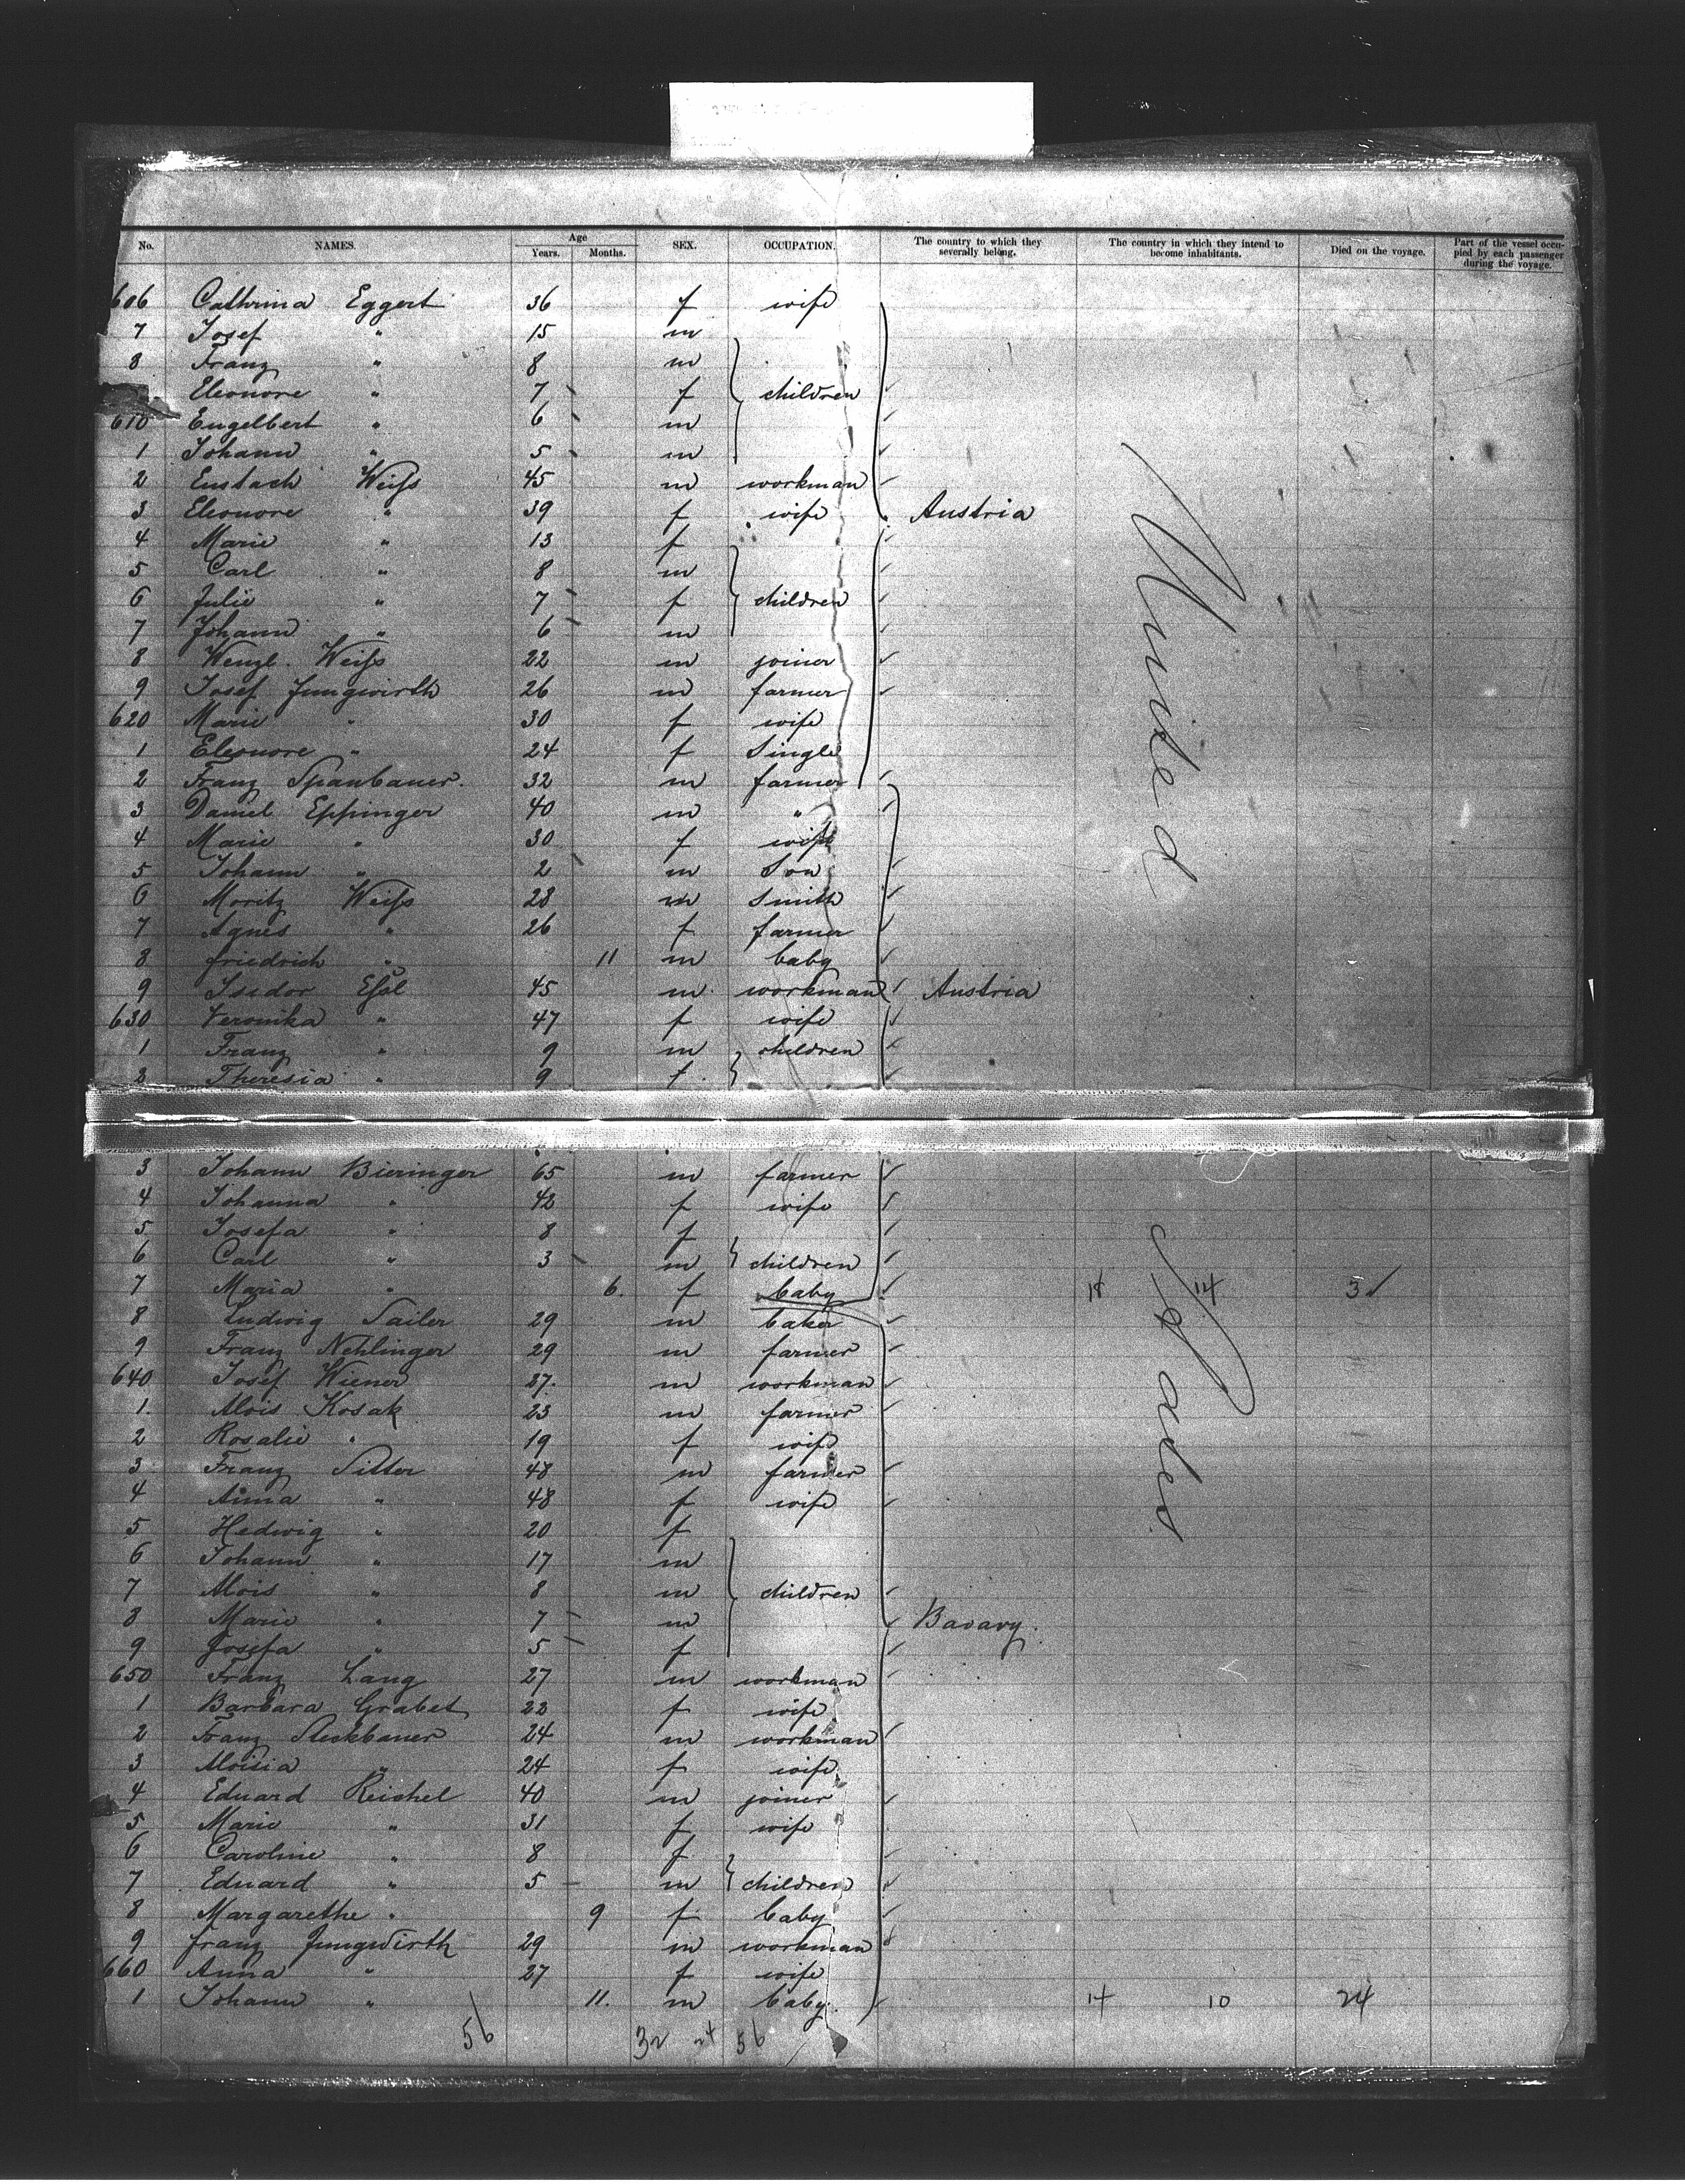 No. NAMES. Age Years. Months. SEX. OCCUPATION. The country to which they severally belong. The country in which they intend to become inhabitants. Died on the voyage. Part of the vessel occupied by each passenger during the voyage.
606 Cathrina Eggert 36 f wife
7 Josef " 15 m
8 Franz " 8 m
Eleonore " 7 f children
610 Engelbert " 6 m
1 Johann " 5 m
2 Eustach Weiſs 45 m workman
3 Eleonore " 39 f wife Austria
4 Marie " 13 f
5 Carl " 8 m
6 Julie " 7 f children
7 Johann " 6 m
8 Wenzl. Weiſs 22 m joiner
9 Josef Jungwirth 26 m farmer
620 Marie " 30 f wife
1 Eleonore " 24 f Single
2 Franz Spanbauer. 32 m farmer
3 Daniel Eppinger 40 m "
4 Marie " 30 f wife
5 Johann " 2 m Son
6 Moritz Weiſs 28 m Smith
7 Agnes " 26 f farmer
8 friedrich " 11 m baby
9 Isidor 45 m workman Austria
630 Veronika " 47 f wife
1 Franz " 9 m children
2 Theresia " 9 f.
United
3 Johann Bieringer 65 m farmer
4 Johanna " 42 f wife
5 Josefa " 8 f
6 Carl " 3 m children
7 Maria " 6. f baby 18 14 3
8 Ludwig Sailer 29 m baker
9 Franz Nehlinger 29 m farmer
640 Josef Wiener 27. m workman
1. Alois Kosak 23 m farmer
2 Rosalie " 19 f wife
3 Franz Sitter 48 m farmer
4 Anna " 48 f wife
5 Hedwig " 20 f
6 Johann " 17 m
7 Alois " 8 m children
8 Marie " 7 m Bavary.
9 Josefa " 5 f
650 Franz Lang 27 m workman
1 Barbara Grabet 22 f wife
2 Franz Steckbauer 24 m workman
3 Aloisia " 24 f wife
4 Eduard Reichel 40 m joiner
5 Marie " 31 f wife
6 Caroline " 8 f
7 Eduard " 5 m children
8 Margarethe " 9 f baby
9 franz Jungwirth 29 m workman
660 Anna " 27 f wife
1 Johann " 11. m baby. 14 10 24
States
56 32 24 56